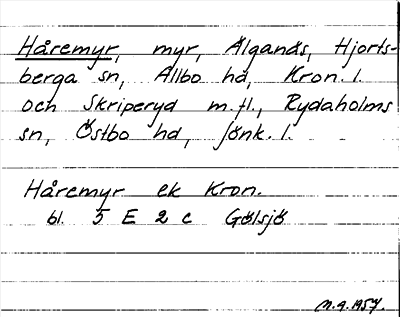 Håremyr, myr, Älganäs, Hjorts-
berga sn, Allbo hd, Kron. l.
och Skriperyd m.fl., Rydaholms
sn, Östbo hd, Jönk. l.
Håremyr ek Kron.
bl. 5 E 2 c Gölsjö
M.q.1957.